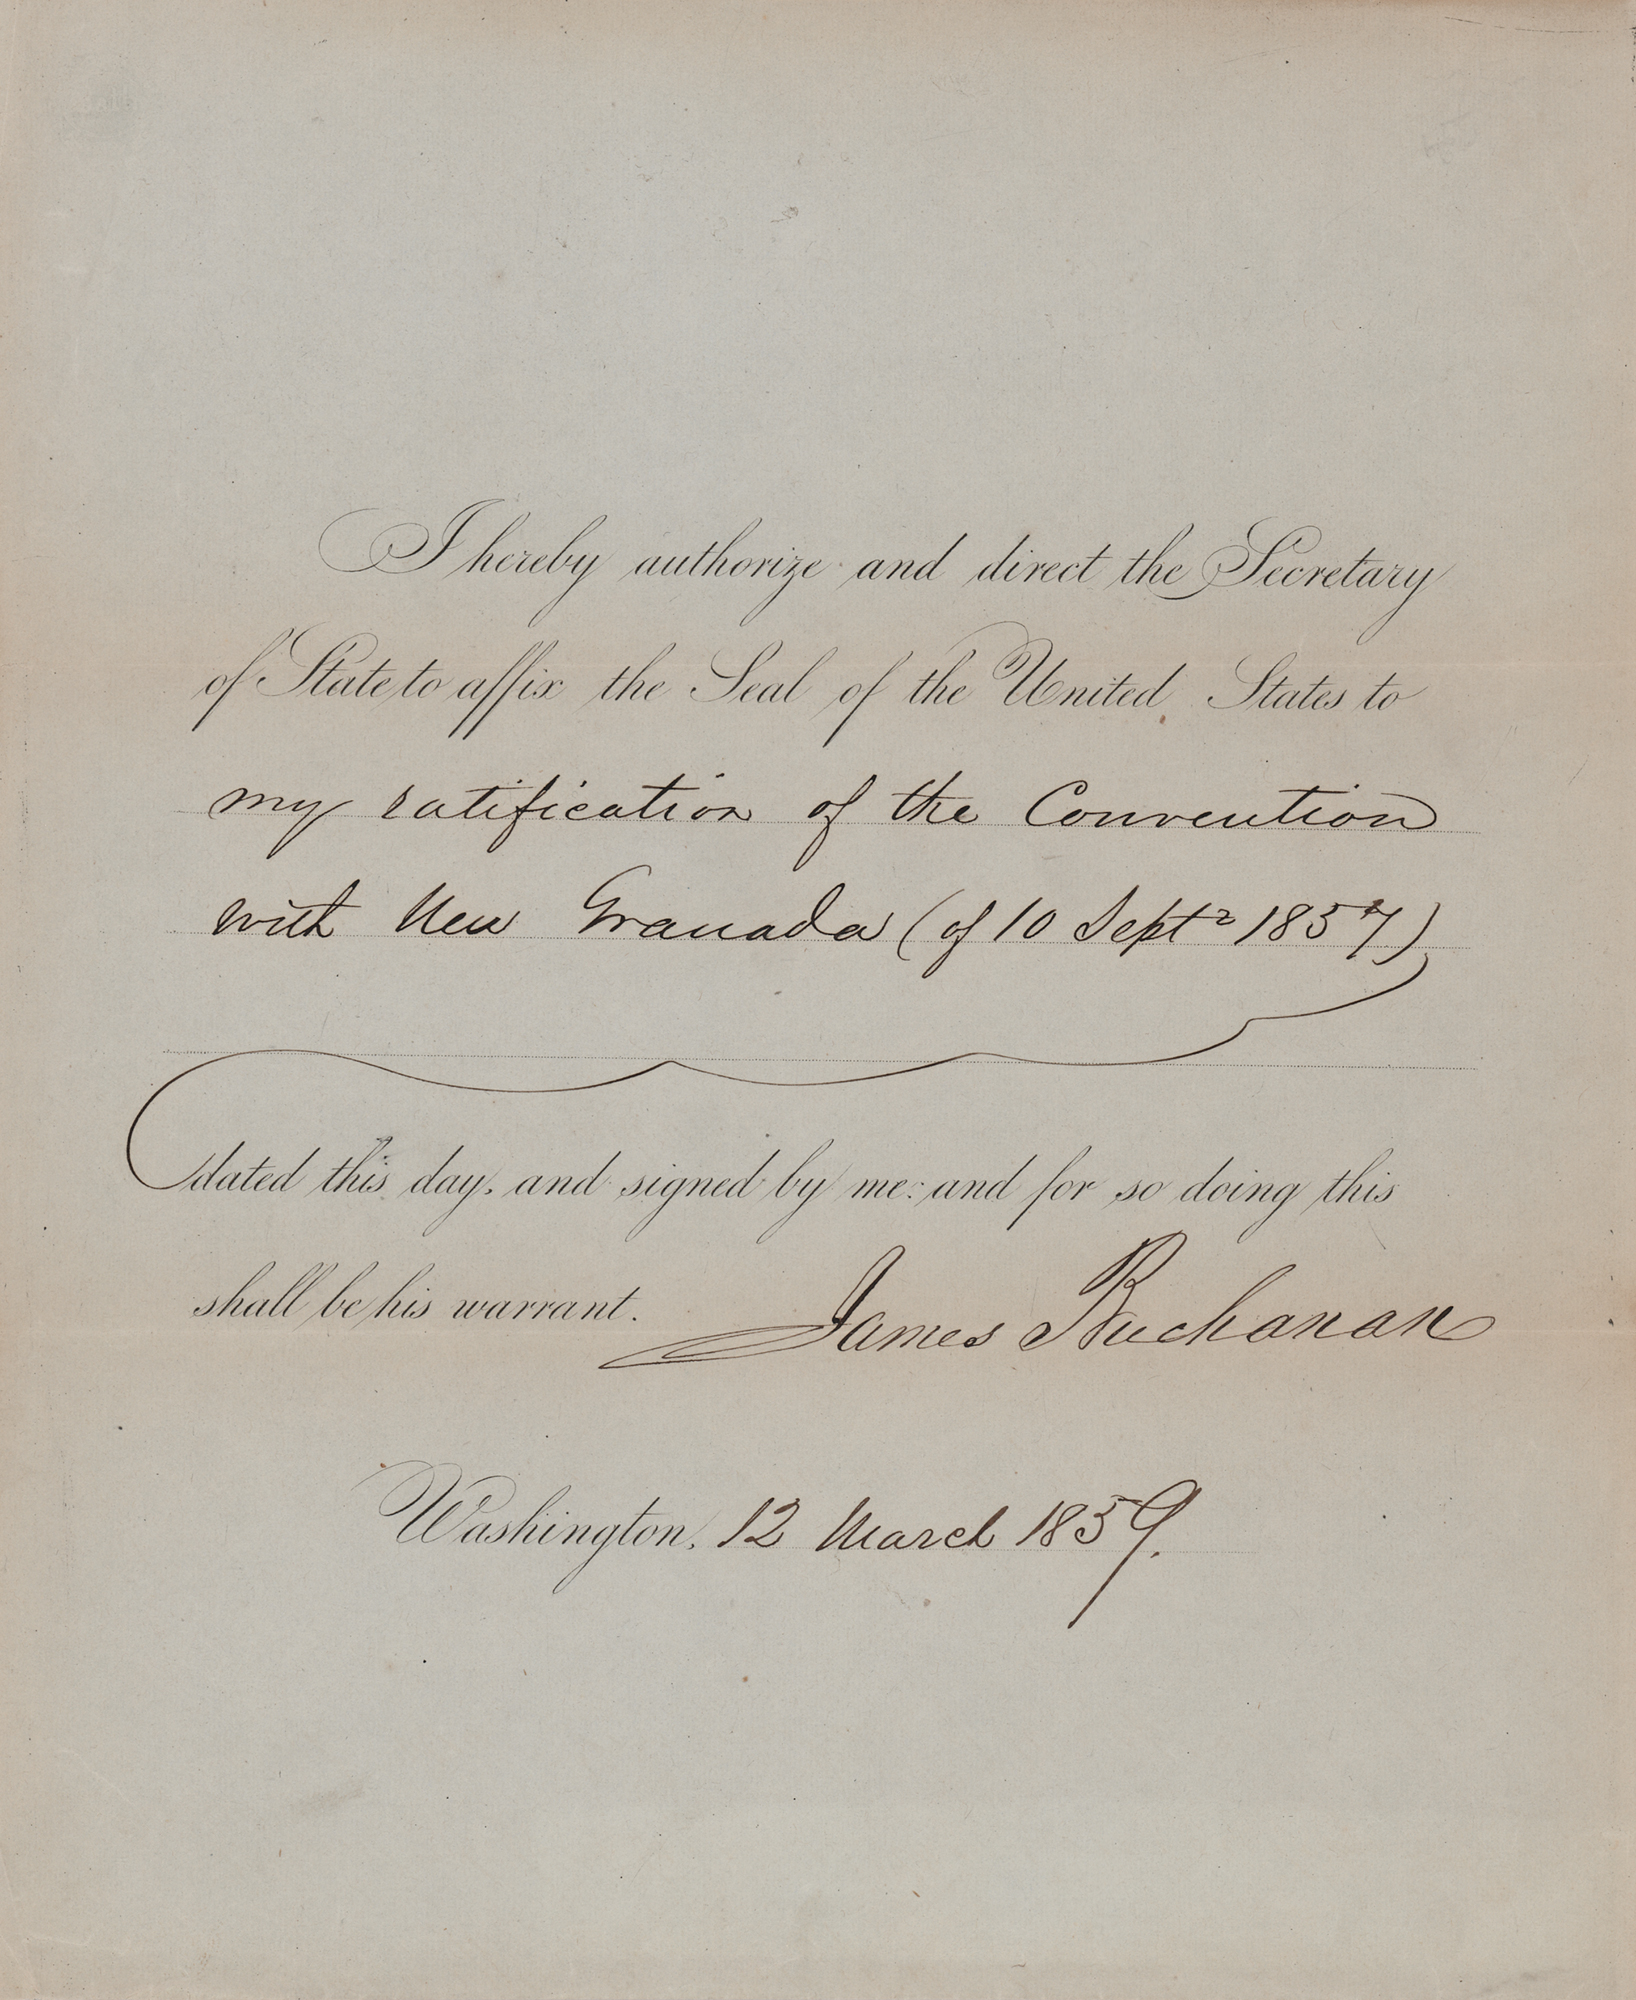 I hereby authorize and direct the Secretary
of State to affix the Seal of the United States to
my ratification of the Convention
with New Granada (of 10 Septr 1857)
dated this day, and signed by me: and for so doing this
shall be his warrant.
James Buchanan
Washington, 12 March 1859.